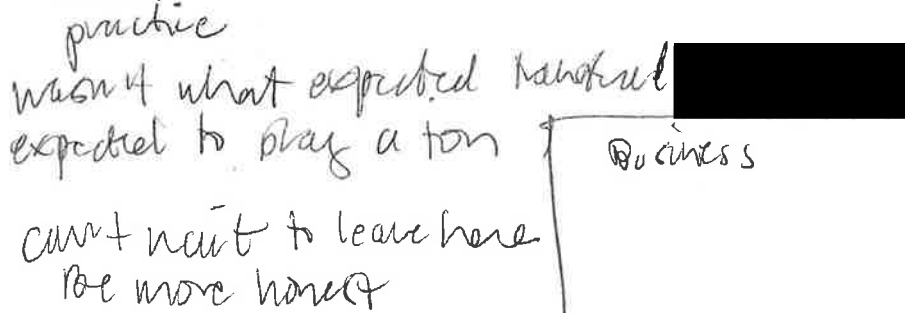 practice
wasn't what expected transferred
expected to play a ton
Business
can't wait to leave here
Be more honest